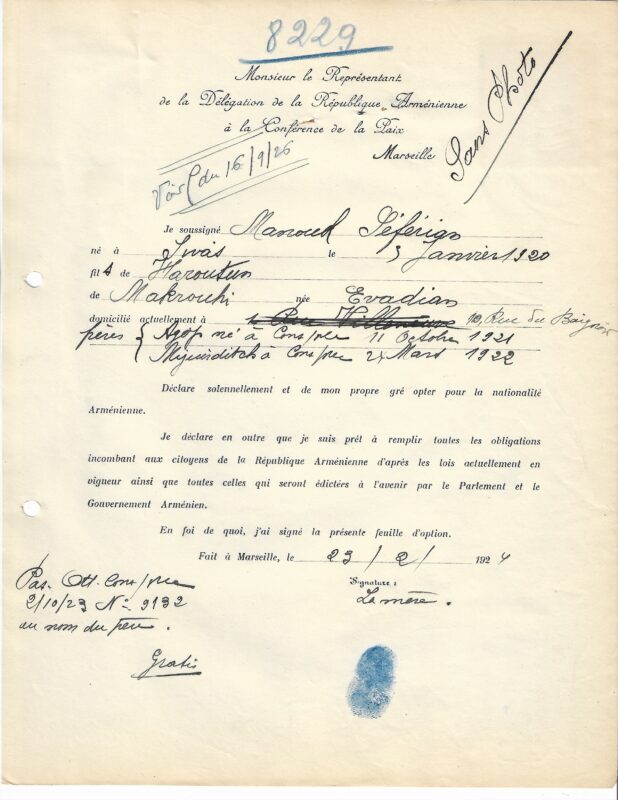 8229
Monsieur le Représentant
de la Délégation de la République Arménienne
à la Conférence de la Paix
Marseille
Sans Photo
Voir du 16/9/26
Je soussigné Manouk Séférian
né à Sivas le 5 Janvier 1920
fils de Haroutun
de Makrouhi née Evadian
domicilié actuellement à 10, Rue du Baignoir
frères { Agop né à Cons/ple 11 Octobre 1921
Miguirditch à Cons/ple 24 Mars 1922
Déclare solennellement et de mon propre gré opter pour la nationalité
Arménienne.
Je déclare en outre que je suis prêt à remplir toutes les obligations
incombant aux citoyens de la République Arménienne d'après les lois actuellement en
vigueur ainsi que toutes celles qui seront édictées à l'avenir par le Parlement et le
Gouvernement Arménien.
En foi de quoi, j'ai signé la présente feuille d'option.
Fait à Marseille, le 23/2/ 1924
Signature :
La mère.
Pas. Ott. Cons/ple
2/10/23 No 9132
au nom du père.
Gratis